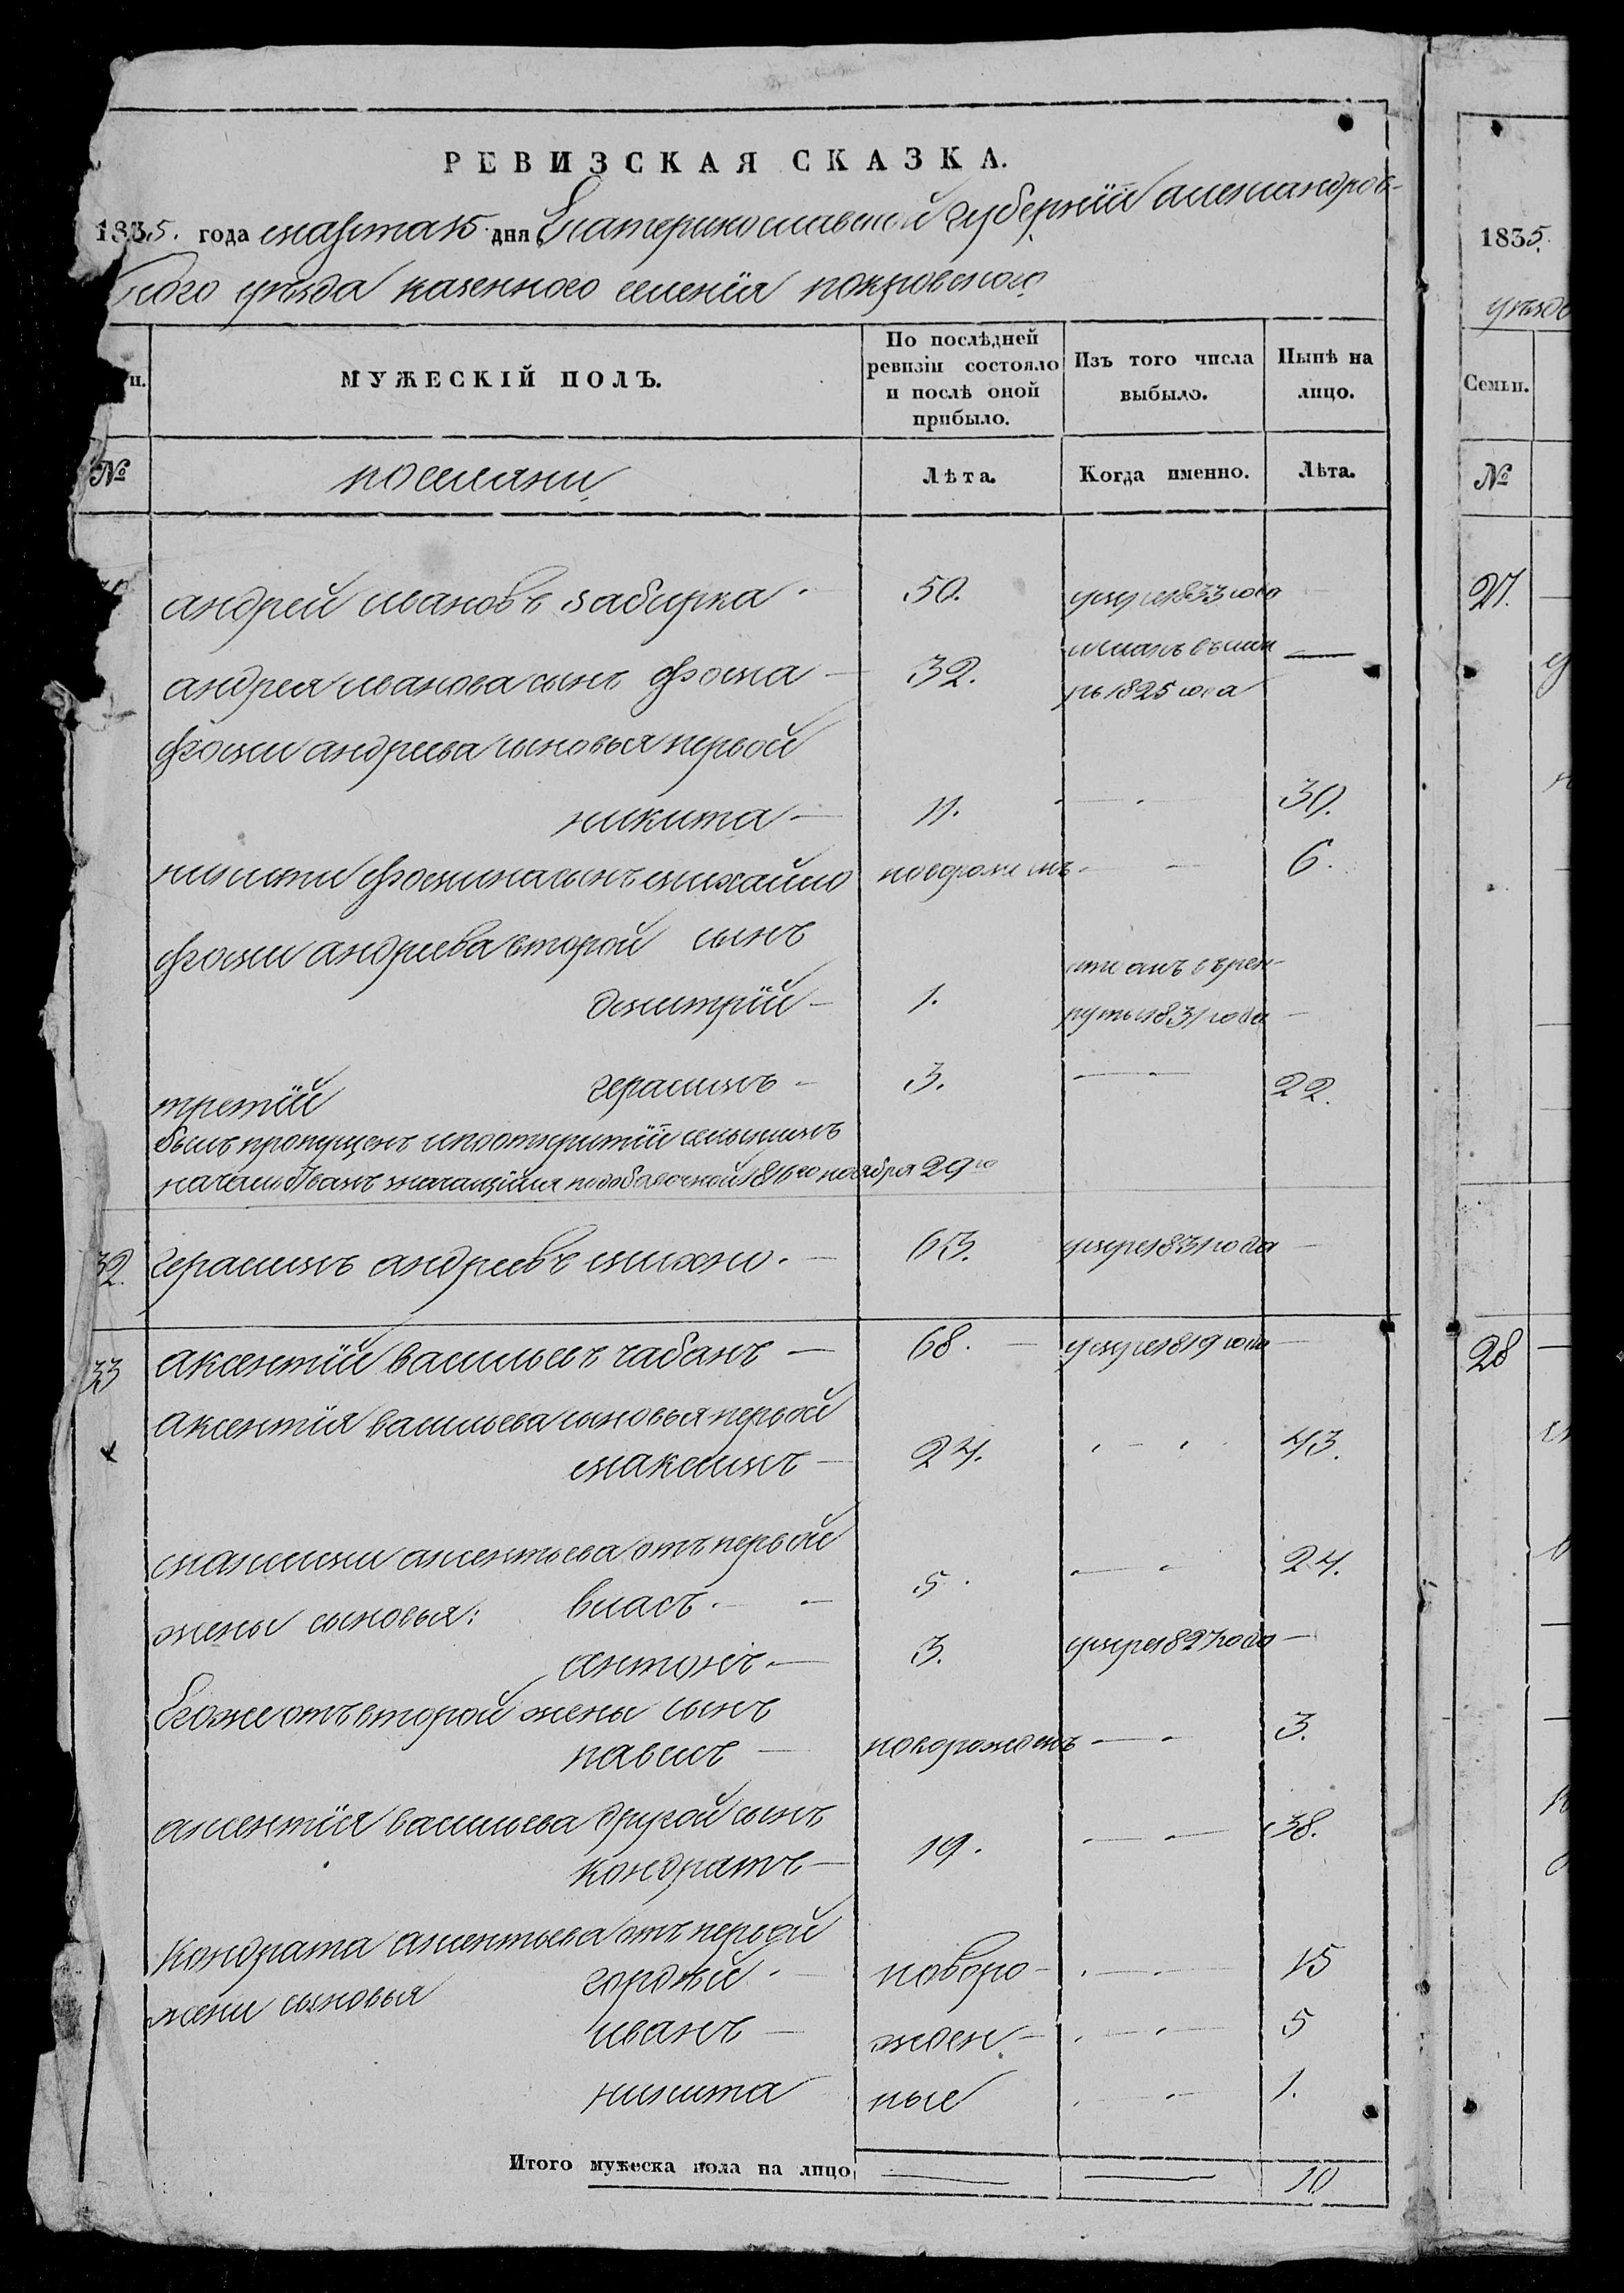 РЕВИЗСКАЯ СКАЗКА.
1835. года марта 15 дня Екатеринославской губернїи александров-
ского уѣзда казенного селенїя покровского
МУЖЕСКІЙ ПОЛЪ.
По послѣдней ревизіи состояло и послѣ оной прибыло.
Изъ того числа выбыло.
Нынѣ на лицо.
№ поселяни Лѣта. Когда именно. Лѣта.
андрей ивановъ забирка 50. умре 1833 года
андрея иванова сынъ фома 32. 1825 года
фоми андреева сыновья первой
никита 11. 30.
никити фомина сынъ михайло новорожденъ 6.
фоми андреева второй сынъ
дмитрїй 1. рекруты 1831 года
третїй герасимъ 3. 22.
былъ пропущенъ
ноября 29го
32. герасимъ андреевъ михно. 63. умре 1831 года
33 аксентїй васильевъ чабанъ 68. умре 1819 года
аксентїя васильева сыновья первой
максимъ 24. 43.
максими аксентьева отъ первой
жены сыновья: власъ 5. 24.
антонъ 3. умре 1827 года
Егоже отъ второй жены сынъ
павелъ новорожденъ 3.
аксентїя васильева другой сынъ
кондратъ 19. 38.
кондрата аксентьева отъ первой
жени сыновья гордѣй новоро- 15
иванъ жден- 5
никита ные 1.
Итого мужеска пола на лицо 10
1835.
уѣзда
Семьи.
№
27.
28